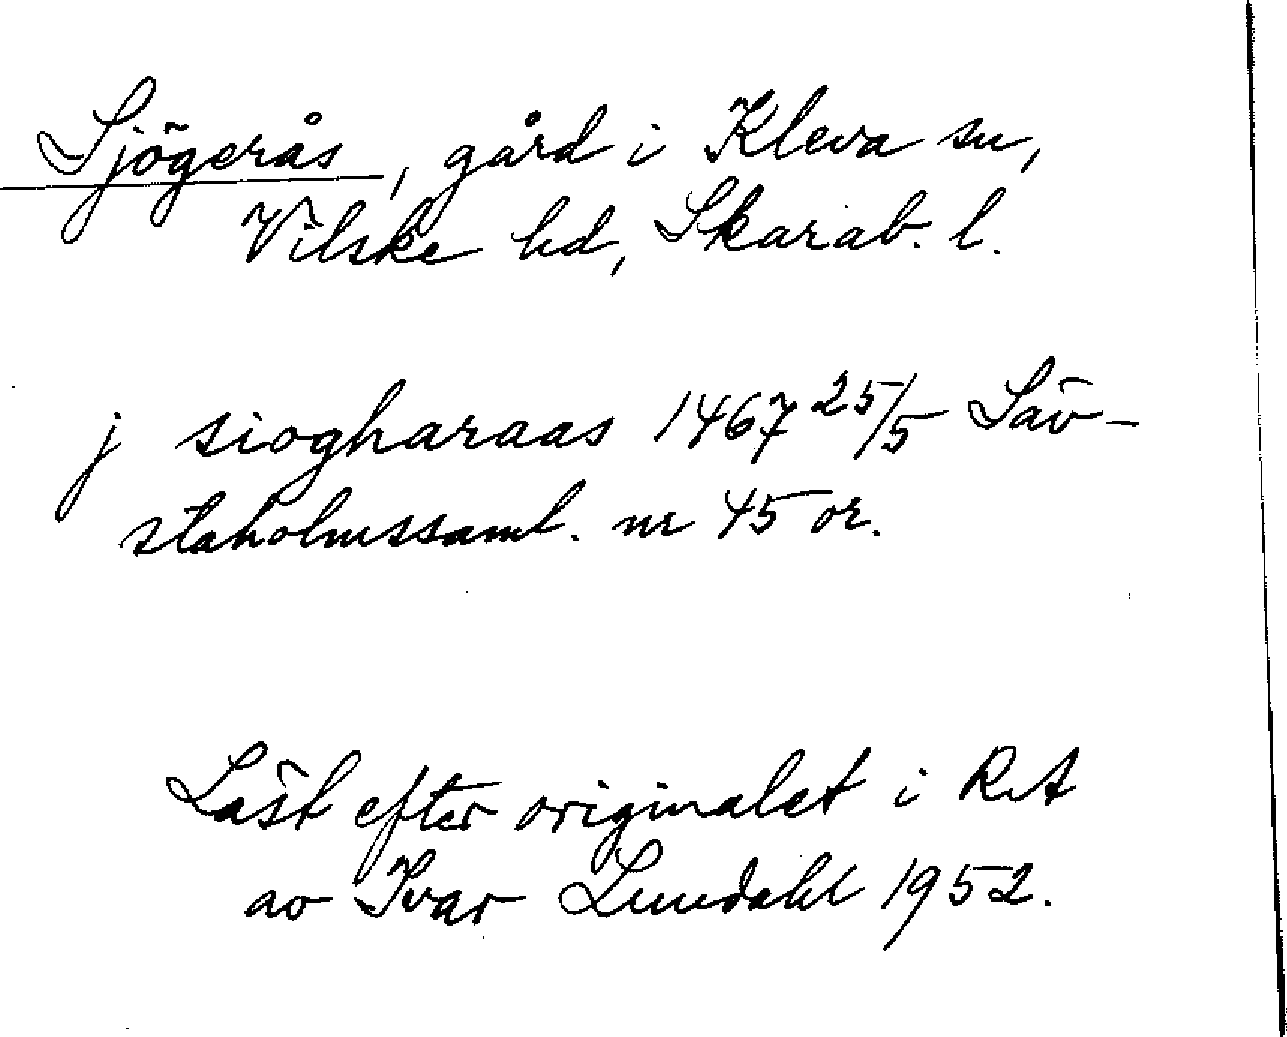 Sjögerås, gård i Kleva sn,
Vilske hd, Skarab. l.
j siogharaas 1467 25/5 Säv-
staholmssaml. nr 45 or.
Läst efter originalet i RA
av Ivar Lundahl 1952.